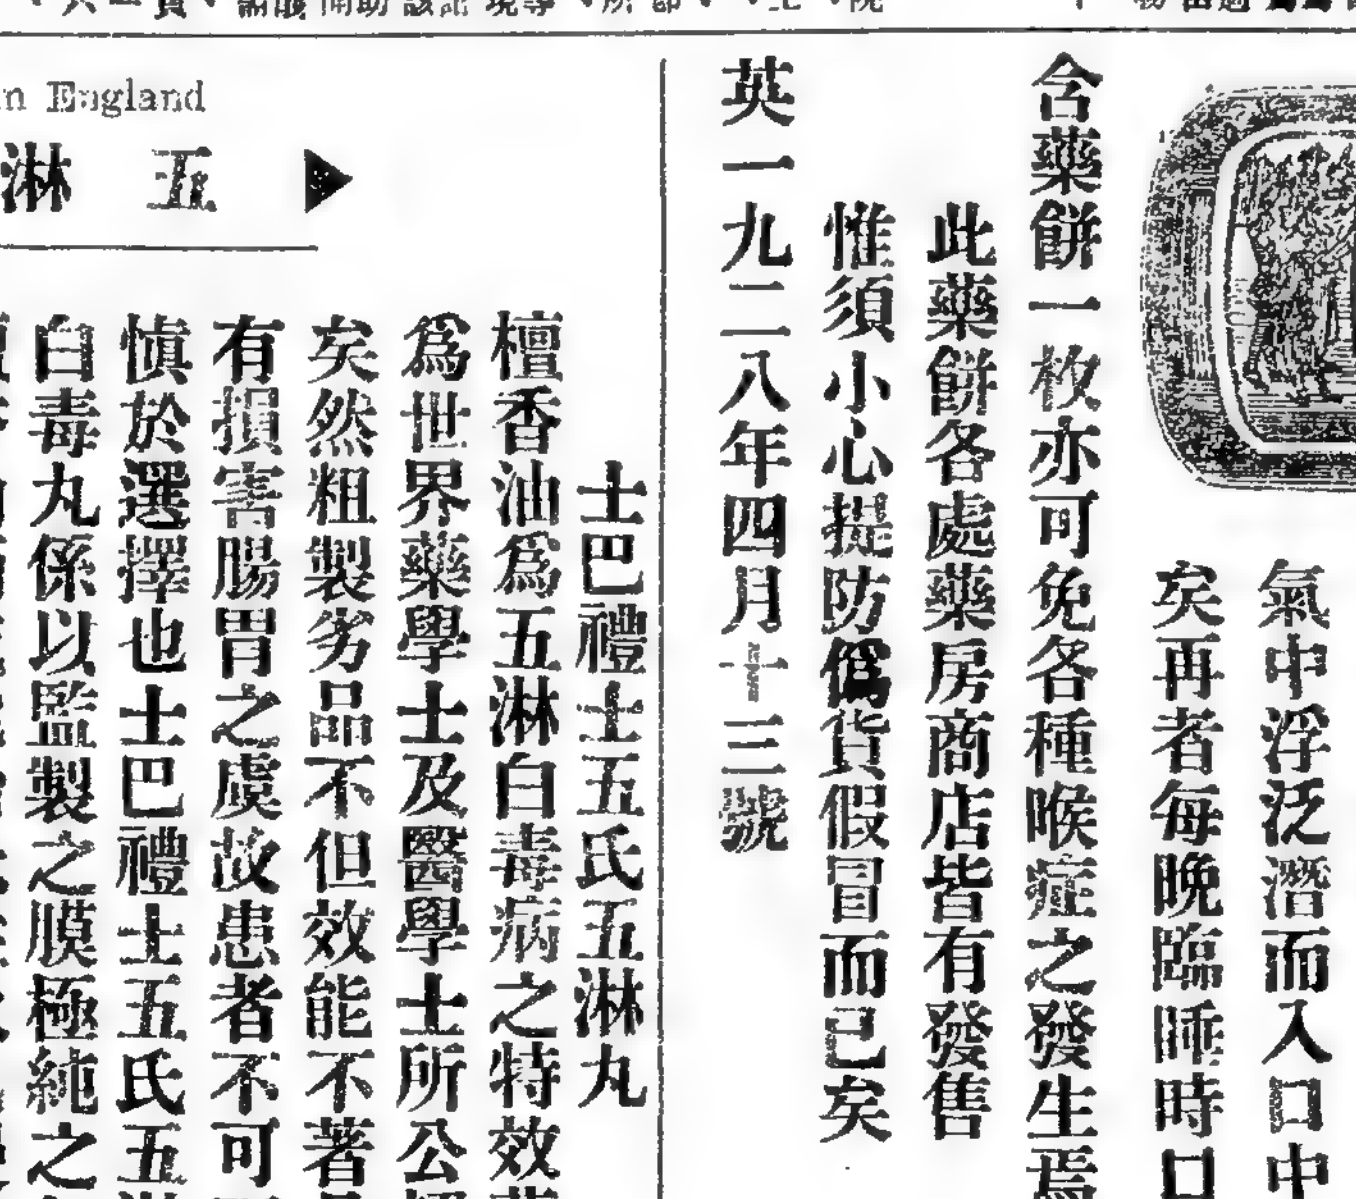 氣中浮泛潛而入口中
矣再者每晚臨睡時口
含藥餅一枚亦可免各種喉症之發生焉
此藥餅各處藥房商店皆有發售
惟須小心提防僞貨假冒而已矣
英一九二八年四月十三號
England
五淋
士巴禮士五氏五淋丸
檀香油爲五淋白毒病之特效
爲世界藥學士及醫學士所公
矣然粗製劣品不但效能不著
有損害腸胃之虞故患者不可
慎於選擇也士巴禮士五氏五
白毒丸係以監製之膜極純之